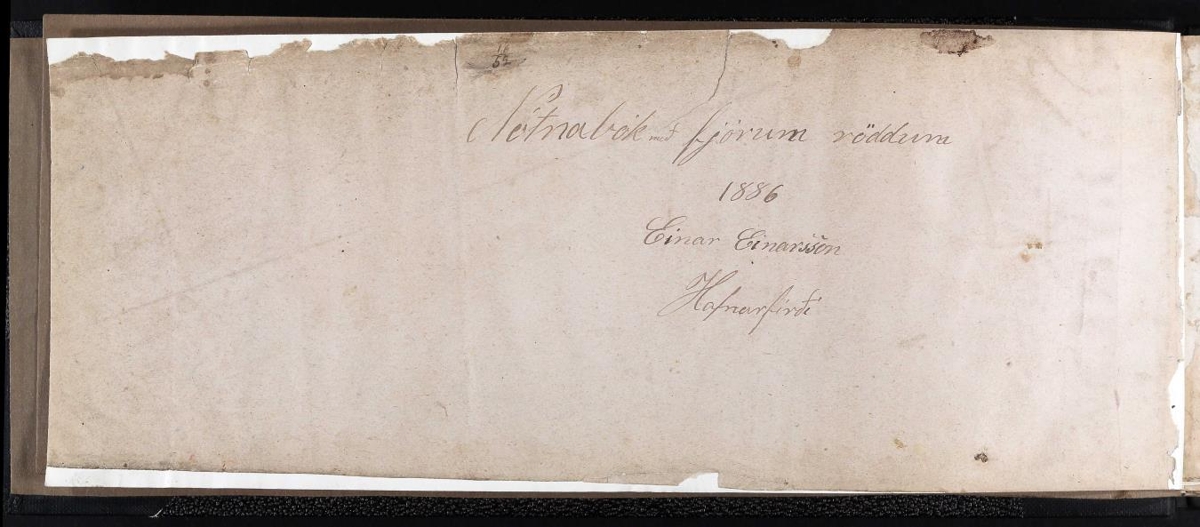 Nótnabók með fjórum röddum
1886
Einar Einarsson
Hafnarfirði